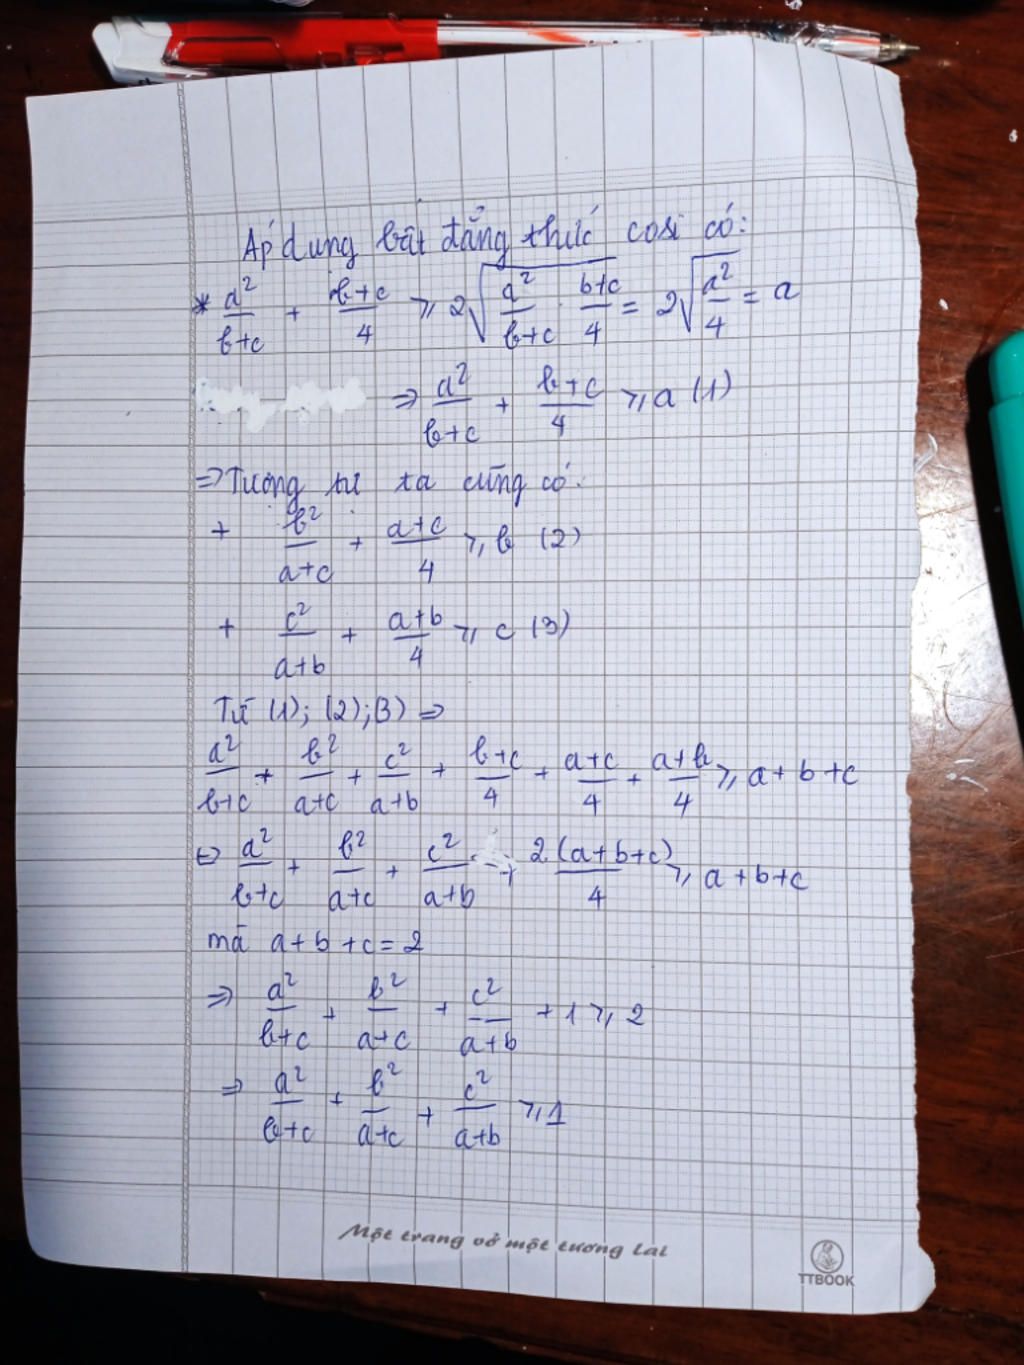 Áp dụng bất đẳng thức cosi có:
* a²/(b+c) + (b+c)/4 ⩾ 2√(a²/(b+c) · (b+c)/4) = 2√(a²/4) = a
⇒ a²/(b+c) + (b+c)/4 ⩾ a (1)
⇒ Tương tự ta cũng có:
+ b²/(a+c) + (a+c)/4 ⩾ b (2)
+ c²/(a+b) + (a+b)/4 ⩾ c (3)
Từ (1); (2); (3) ⇒
a²/(b+c) + b²/(a+c) + c²/(a+b) + (b+c)/4 + (a+c)/4 + (a+b)/4 ⩾ a + b + c
⇔ a²/(b+c) + b²/(a+c) + c²/(a+b) + 2(a+b+c)/4 ⩾ a + b + c
mà a + b + c = 2
⇒ a²/(b+c) + b²/(a+c) + c²/(a+b) + 1 ⩾ 2
⇒ a²/(b+c) + b²/(a+c) + c²/(a+b) ⩾ 1
Một trang vở một tương lai
TTBOOK